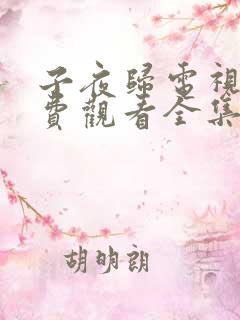 子夜歸電視
費觀看全集
胡明朗